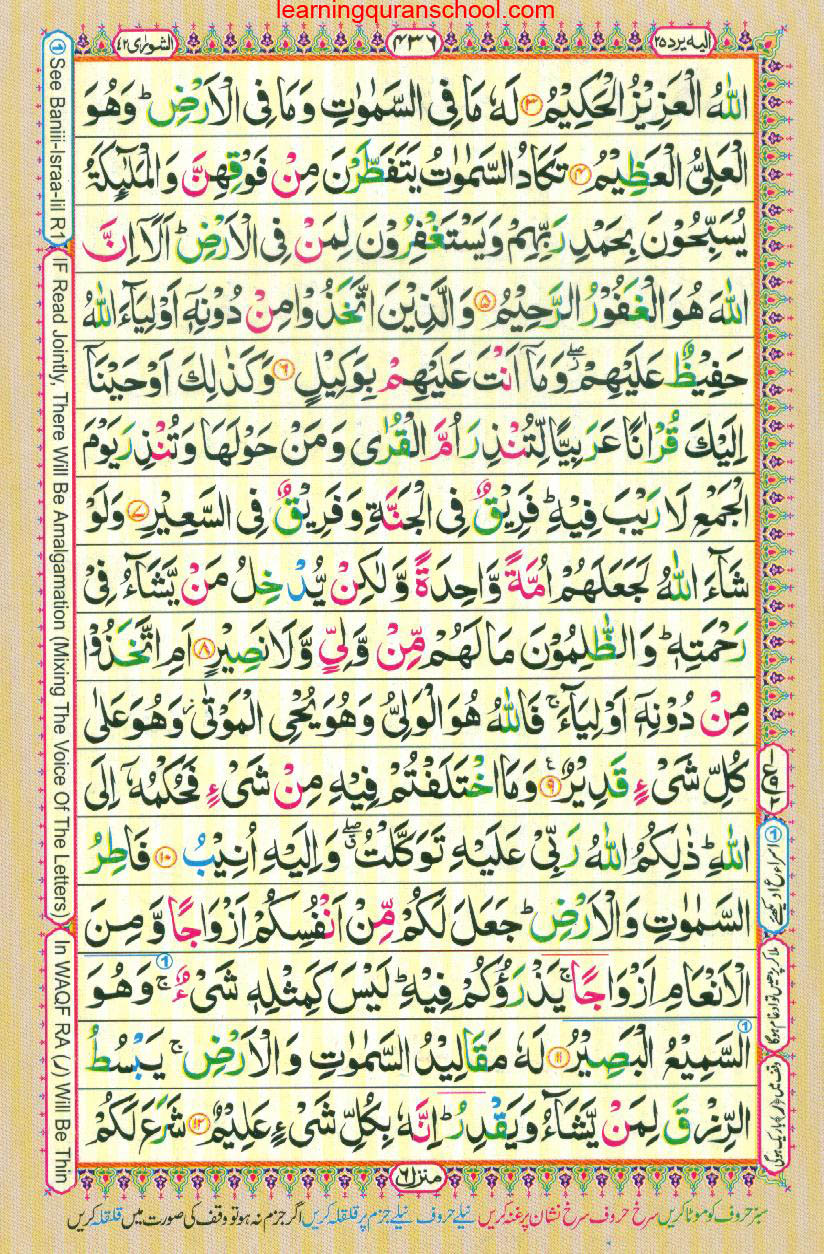 learningquranschool.com
اليه يرد ٢٥
٤٣٦
الشورٰى ٤٢
اللّٰهُ الْعَزِيْزُ الْحَكِيْمُ ٣ لَهٗ مَا فِى السَّمٰوٰتِ وَمَا فِى الْاَرْضِ ؕ وَهُوَ
الْعَلِىُّ الْعَظِيْمُ ٤ تَكَادُ السَّمٰوٰتُ يَتَفَطَّرْنَ مِنْ فَوْقِهِنَّ وَالْمَلٰٓئِكَةُ
يُسَبِّحُوْنَ بِحَمْدِ رَبِّهِمْ وَيَسْتَغْفِرُوْنَ لِمَنْ فِى الْاَرْضِ ؕ اَلَاۤ اِنَّ
اللّٰهَ هُوَ الْغَفُوْرُ الرَّحِيْمُ ٥ وَالَّذِيْنَ اتَّخَذُوْا مِنْ دُوْنِهٖۤ اَوْلِيَآءَ اللّٰهُ
حَفِيْظٌ عَلَيْهِمْ ۖ وَمَاۤ اَنْتَ عَلَيْهِمْ بِوَكِيْلٍ ٦ وَكَذٰلِكَ اَوْحَيْنَاۤ
اِلَيْكَ قُرْاٰنًا عَرَبِيًّا لِّتُنْذِرَ اُمَّ الْقُرٰى وَمَنْ حَوْلَهَا وَتُنْذِرَ يَوْمَ
الْجَمْعِ لَا رَيْبَ فِيْهِ ؕ فَرِيْقٌ فِى الْجَنَّةِ وَفَرِيْقٌ فِى السَّعِيْرِ ٧ وَلَوْ
شَآءَ اللّٰهُ لَجَعَلَهُمْ اُمَّةً وَّاحِدَةً وَّلٰكِنْ يُّدْخِلُ مَنْ يَّشَآءُ فِىْ
رَحْمَتِهٖ ؕ وَالظّٰلِمُوْنَ مَا لَهُمْ مِّنْ وَّلِىٍّ وَّلَا نَصِيْرٍ ٨ اَمِ اتَّخَذُوْا
مِنْ دُوْنِهٖۤ اَوْلِيَآءَ ۚ فَاللّٰهُ هُوَ الْوَلِىُّ وَهُوَ يُحْىِ الْمَوْتٰى ؗ وَهُوَ عَلٰى
كُلِّ شَىْءٍ قَدِيْرٌ ٩ وَمَا اخْتَلَفْتُمْ فِيْهِ مِنْ شَىْءٍ فَحُكْمُهٗۤ اِلَى
اللّٰهِ ؕ ذٰلِكُمُ اللّٰهُ رَبِّىْ عَلَيْهِ تَوَكَّلْتُ ۖ وَاِلَيْهِ اُنِيْبُ ١٠ فَاطِرُ
السَّمٰوٰتِ وَالْاَرْضِ ؕ جَعَلَ لَكُمْ مِّنْ اَنْفُسِكُمْ اَزْوَاجًا وَّمِنَ
الْاَنْعَامِ اَزْوَاجًا ۚ يَذْرَؤُكُمْ فِيْهِ ؕ لَيْسَ كَمِثْلِهٖ شَىْءٌ ۚ وَهُوَ
السَّمِيْعُ الْبَصِيْرُ ١١ لَهٗ مَقَالِيْدُ السَّمٰوٰتِ وَالْاَرْضِ ۚ يَبْسُطُ
الرِّزْقَ لِمَنْ يَّشَآءُ وَيَقْدِرُ ؕ اِنَّهٗ بِكُلِّ شَىْءٍ عَلِيْمٌ ١٢ شَرَعَ لَكُمْ
منزل ٦
سبز حروف کو موٹا کریں سرخ حروف سرخ نشان پر غنہ کریں نیلے حروف نیلے جزم پر قلقلہ کریں اگر جزم نہ ہو تو وقف کی صورت میں قلقلہ کریں
① See Baniii-Israa-Iil R1
IF Read Jointly, There Will Be Amalgamation (Mixing The Voice Of The Letters)
In WAQF RA (ر) Will Be Thin